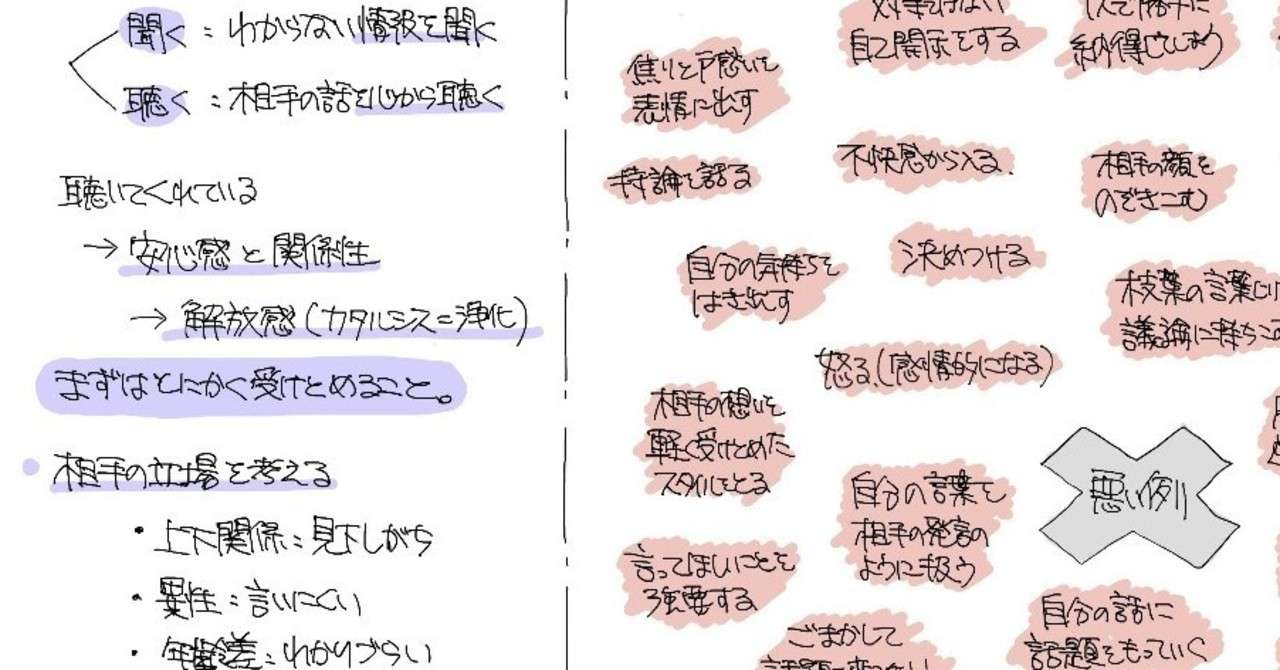 聞く：わからない情報を聞く
聴く：相手の話を心から聴く
聴いてくれている
→ 安心感と関係性
→ 解放感（カタルシス＝浄化）
まずはとにかく受けとめること。
相手の立場を考える
・上下関係：見下しがち
・異性：言いにくい
・年齢差：わかりづらい
自己開示をする
納得してしまう
焦りと戸惑いを
表情に出す
不快感から入る
相手の顔を
のぞきこむ
持論を語る
決めつける
自分の気持ちを
はき出す
枝葉の言葉に
議論に持ちこ
怒る（感情的になる）
相手の想いを
軽く受けとめた
スタイルをとる
悪い例
自分の言葉を
相手の発言の
ように扱う
言ってほしいことを
強要する
自分の話に
話題をもっていく
ごまかして